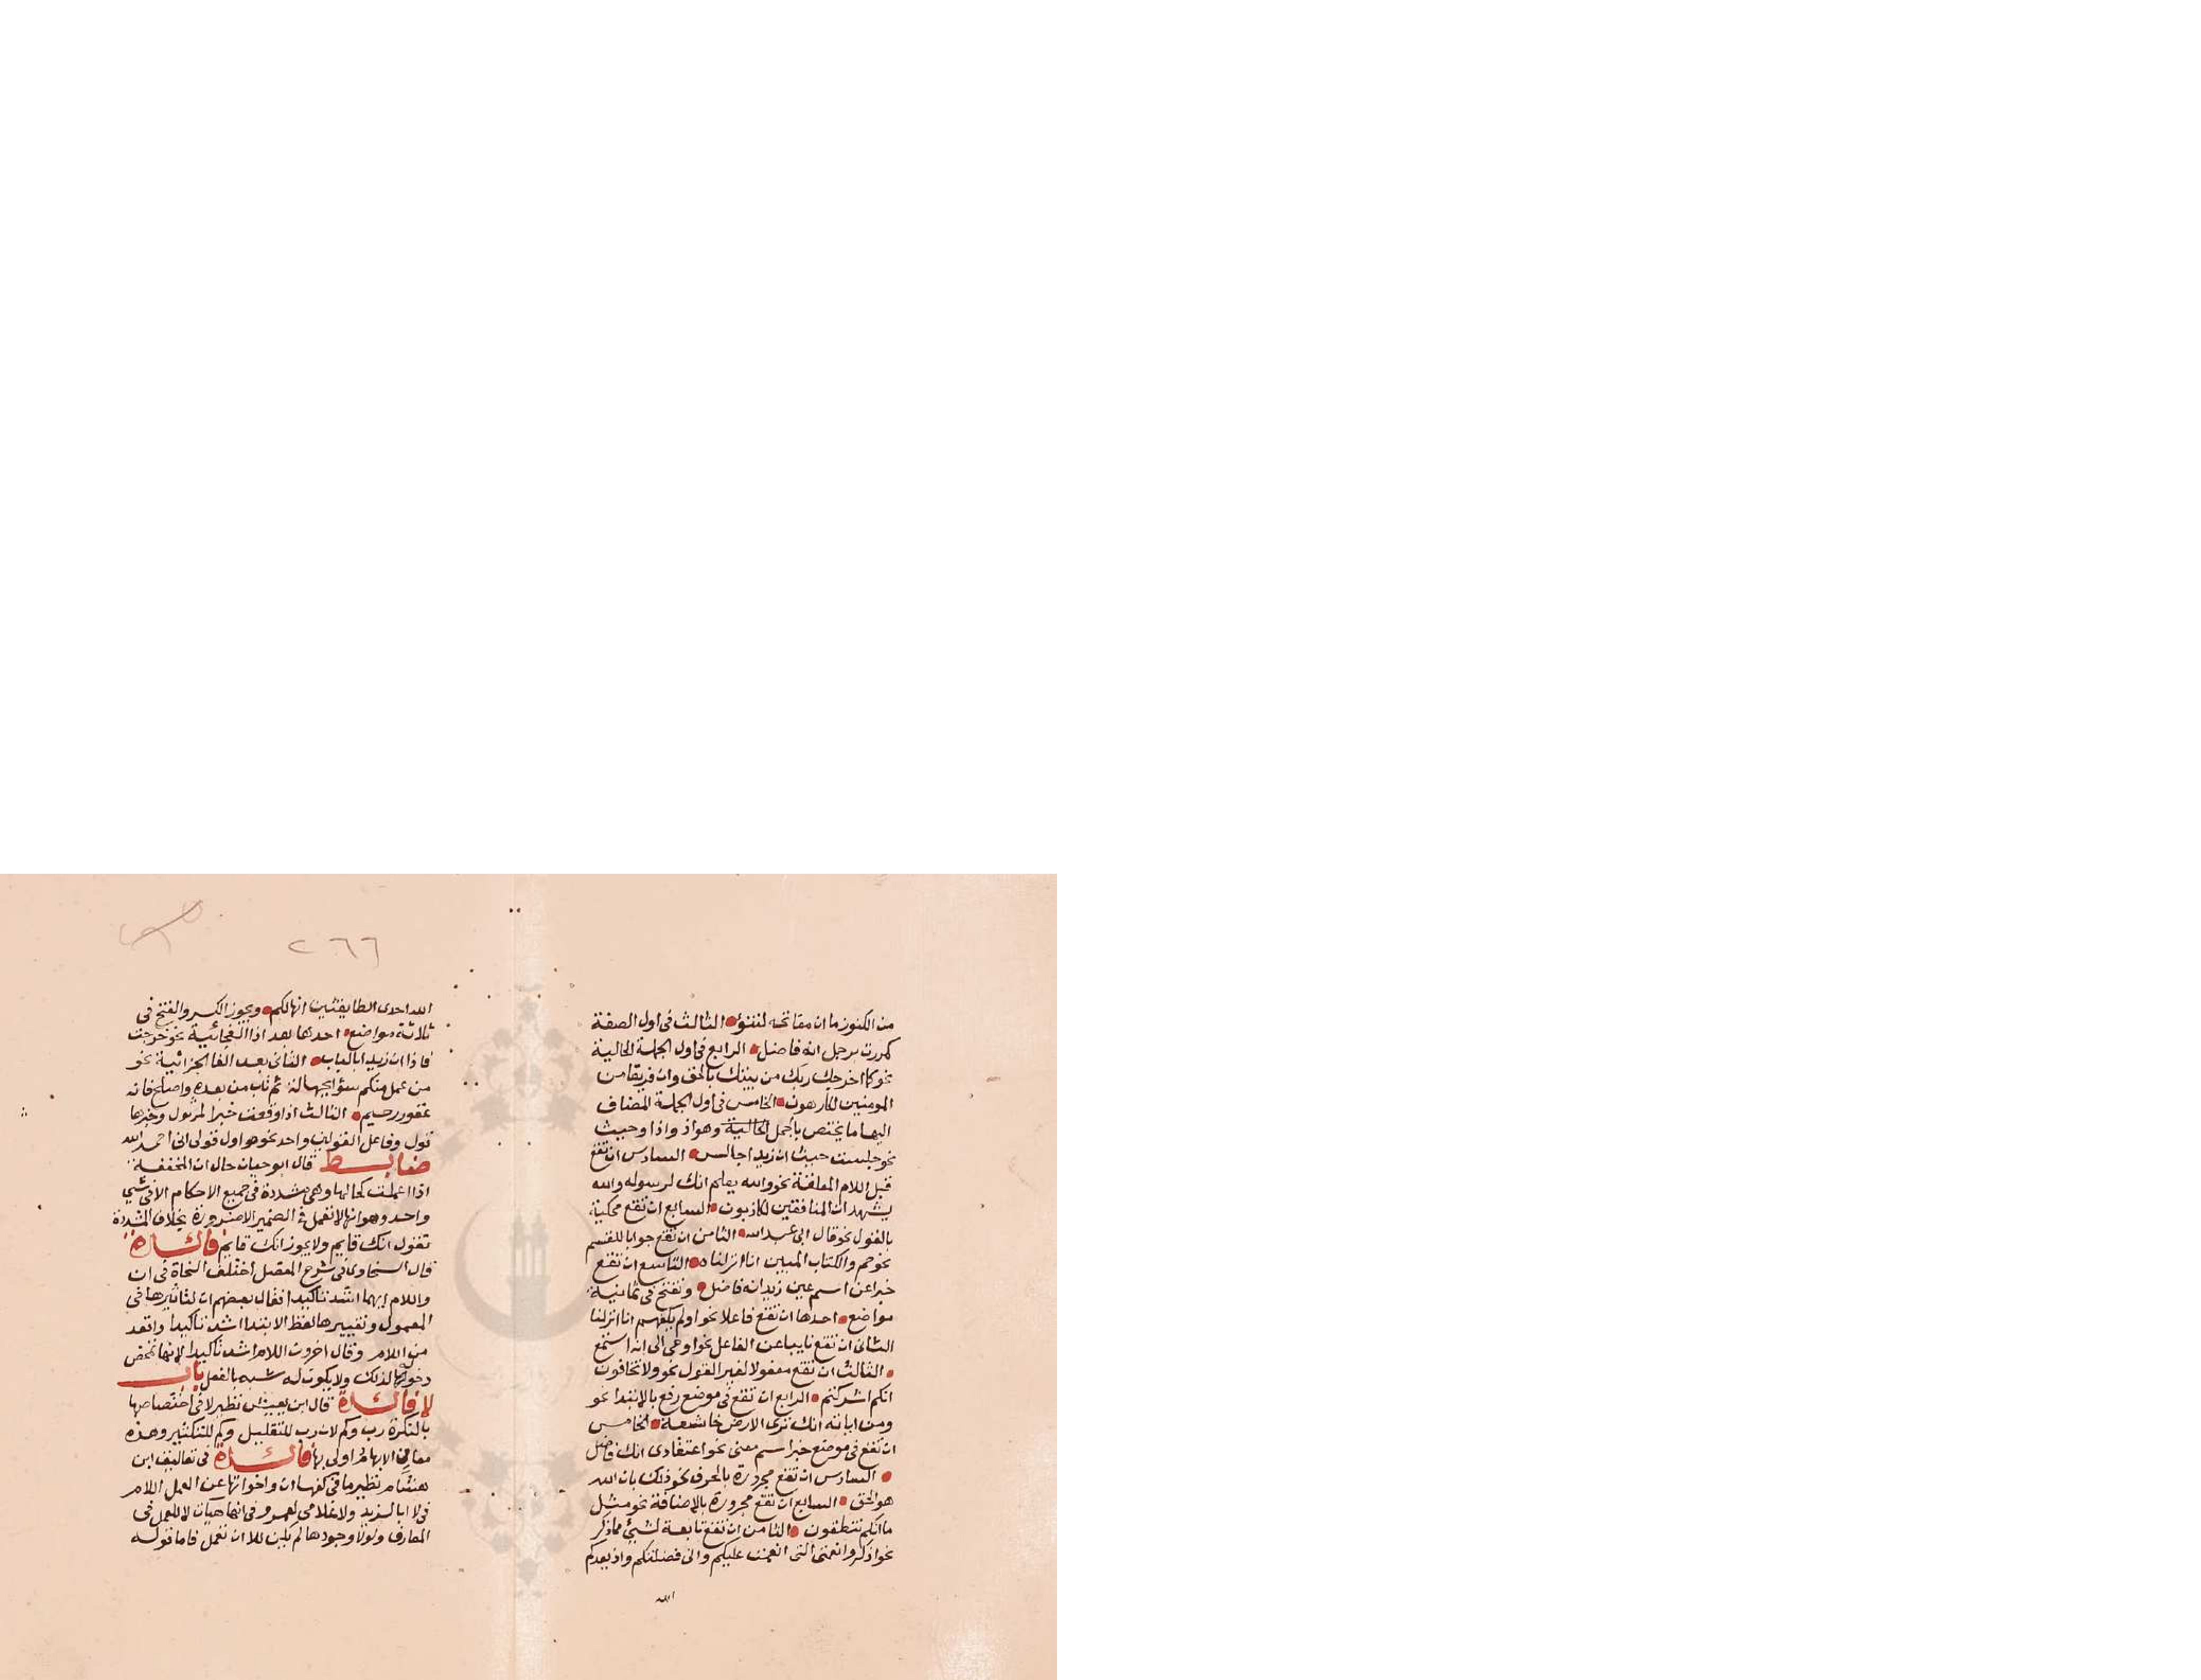 من الكنوز ما ان مفاتحه لتنوؤ الثالث فى اول الصفة
كمررت برجل انه فاضل الرابع فى اول الجملة الحالية
نحو كما اخرجك ربك من بيتك بالحق وان فريقا من
المومنين لكارهون الخامس فى اول الجملة المضاف
اليها ما يختص بالجمل الحالية وهو اذ واذا وحيث
نحو جلست حيث ان زيدا جالس السادس ان تقع
قبل اللام المعلقة نحو والله يعلم انك لرسوله والله
يشهد ان المنافقين لكاذبون السابع ان تقع محكية
بالقول نحو قال انى عبد الله الثامن ان تقع جوابا للقسم
نحو حم والكتاب المبين انا انزلناه التاسع ان تقع
خبرا عن اسم عين زيد انه فاضل وتفتح فى ثمانية
مواضع احدها ان تقع فاعلا نحو اولم يكفهم انا انزلنا
الثانى ان تقع نايبا عن الفاعل نحو اوحى الى انه استمع
الثالث ان تقع مفعولا لغير القول نحو ولا تخافون
انكم اشركتم الرابع ان تقع فى موضع رفع بالابتدا نحو
ومن اياته انك ترى الارض خاشعة الخامس
ان تقع فى موضع خبر اسم معنى نحو اعتقادى انك فاضل
السادس ان تقع مجرورة بالحرف نحو ذلك بان الله
هو الحق السابع ان تقع مجرورة بالاضافة نحو مثل
ما انكم تنطقون الثامن ان تقع تابعة لشئ مما ذكر
نحو اذكروا نعمتى التى انعمت عليكم وانى فضلتكم واذ يعدكم
الله
٢٦٦
الله احدى الطايفتين انها لكم ويجوز الكسر والفتح فى
ثلاثة مواضع احدها بعد اذا الفجائية نحو خرجت
فاذا ان زيدا بالباب الثانى بعد الفا الجزائية نحو
من عمل منكم سؤا بجهالة ثم تاب من بعده واصلح فانه
غفور رحيم الثالث اذا وقعت خبرا لقول وخبرها
قول وفاعل القولين واحد نحو هو اول قولى انى احمد الله
ضابط قال ابو حيان حال ان المخففة
اذا اعملت كحالها وهى مشددة فى جميع الاحكام الا فى شى
واحد وهو انها لا تعمل فى الضمير الا ضرورة بخلاف المشددة
تقول انك قايم ولا يجوز انك قايم فائدة
قال السخاوى فى شرح المفصل اختلف النحاة فى ان
واللام ايهما اشد تاكيدا فقال بعضهم ان لتاثيرها فى
المعمول وتغييرها لفظ الابتدا اشد تاكيدا واقعد
من اللام وقال اخرون اللام اشد تاكيدا لانها تمحض
دخولها لذلك ولا يكون له شبه بالفعل باب
لا فائدة قال ابن يعيش نظير لا فى اختصاصها
بالنكرة رب وكم لان رب للتقليل وكم للتكثير وهذه
معانى الابهام اولى بها فائدة فى تعاليق ابن
هشام نظير ما فى كفها ان واخواتها عن العمل اللام
فى لا ابا لزيد ولا غلامى لعمرو فى انها هيات لا للعمل فى
المعارف ولولا وجودها لم يكن للا ان تعمل فاما قوله